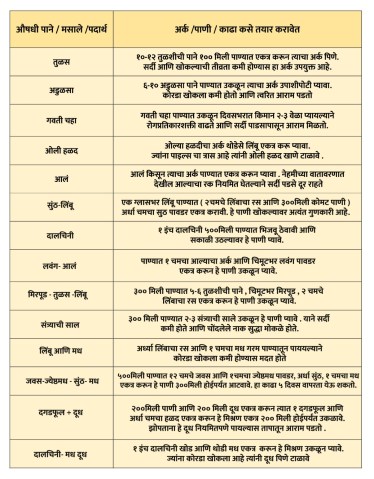 औषधी पाने / मसाले /पदार्थ
अर्क /पाणी / काढा कसे तयार करावेत
तुळस
१०-१२ तुळशीची पाने १०० मिली पाण्यात एकत्र करून त्याचा अर्क पिणे.
सर्दी आणि खोकल्याची तीव्रता कमी होण्यास हा अर्क उपयुक्त आहे.
अडुळसा
६-१० अडुळसा पाने पाण्यात उकळून त्याचा अर्क उपाशीपोटी प्यावा.
कोरडा खोकला कमी होतो आणि त्वरित आराम पडतो
गवती चहा
गवती चहा पाण्यात उकळून दिवसभरात किमान २-३ वेळा प्यायल्याने
रोगप्रतिकारशक्ती वाढते आणि सर्दी पाडसापासून आराम मिळतो.
ओली हळद
ओल्या हळदीचा अर्क थोडेसे लिंबू एकत्र करू प्यावा.
ज्यांना पाइल्स चा त्रास आहे त्यांनी ओली हळद खाणे टाळावे .
आलं
आलं किसून त्याचा अर्क पाण्यात एकत्र करून प्यावा . नेहमीच्या वातावरणात
देखील आल्याचा रक नियमित घेतल्याने सर्दी पडसे दूर राहते
सुंठ-लिंबू
एक ग्लासभर लिंबू पाण्यात ( २चमचे लिंबाचा रस आणि ३००मिली कोमट पाणी )
अर्धा चमचा सुठ पावडर एकत्र करावी. हे पाणी खोकल्यावर अत्यंत गुणकारी आहे.
दालचिनी
१ इंच दालचिनी ५००मिली पाण्यात भिजवू ठेवावी आणि
सकाळी उठल्यावर हे पाणी प्यावे.
लवंग- आलं
पाण्यात १ चमचा आल्याचा अर्क आणि चिमूटभर लवंग पावडर
एकत्र करून हे पाणी उकळून प्यावे.
मिरपूड - तुळस -लिंबू
३०० मिली पाण्यात ५-६ तुळशीची पाने , चिमूटभर मिरपूड , २ चमचे
लिंबाचा रस एकत्र करून हे पाणी उकळून प्यावे.
संत्र्याची साल
३०० मिली पाण्यात २-३ संत्र्याची साले उकळून हे पाणी प्यावे . याने सर्दी
कमी होते आणि चोंदलेले नाक सुद्धा मोकळे होते.
लिंबू आणि मध
अर्ध्या लिंबाचा रस आणि १ चमचा मध गरम पाण्यातून पाययल्याने
कोरडा खोकला कमी होण्यास मदत होते
जवस-ज्येष्ठमध - सुंठ- मध
५००मिली पाण्यात १२ चमचे जवस आणि १चमचा ज्येष्ठमध पावडर, अर्धा सुंठ, १ चमचा मध
एकत्र करून हे पाणी ३००मिली होईपर्यंत आटवावे. हा काढा ५ दिवस वापरता येऊ शकतो.
दगडफूल + दूध
२००मिली पाणी आणि २०० मिली दूध एकत्र करून त्यात १ दगडफूल आणि
अर्धा चमचा हळद एकत्र करून हे मिश्रण एकत्र २०० मिली होईपर्यंत उकळावे.
झोपताना हे दूध नियमितपणे पायल्यास तापातून आराम पडतो .
दालचिनी- मध दूध
१ इंच दालचिनी खोड आणि थोडी मध एकत्र करून हे मिश्रण उकळून प्यावे.
ज्यांना कोरडा खोकला आहे त्यांनी दूध पिणे टाळावे